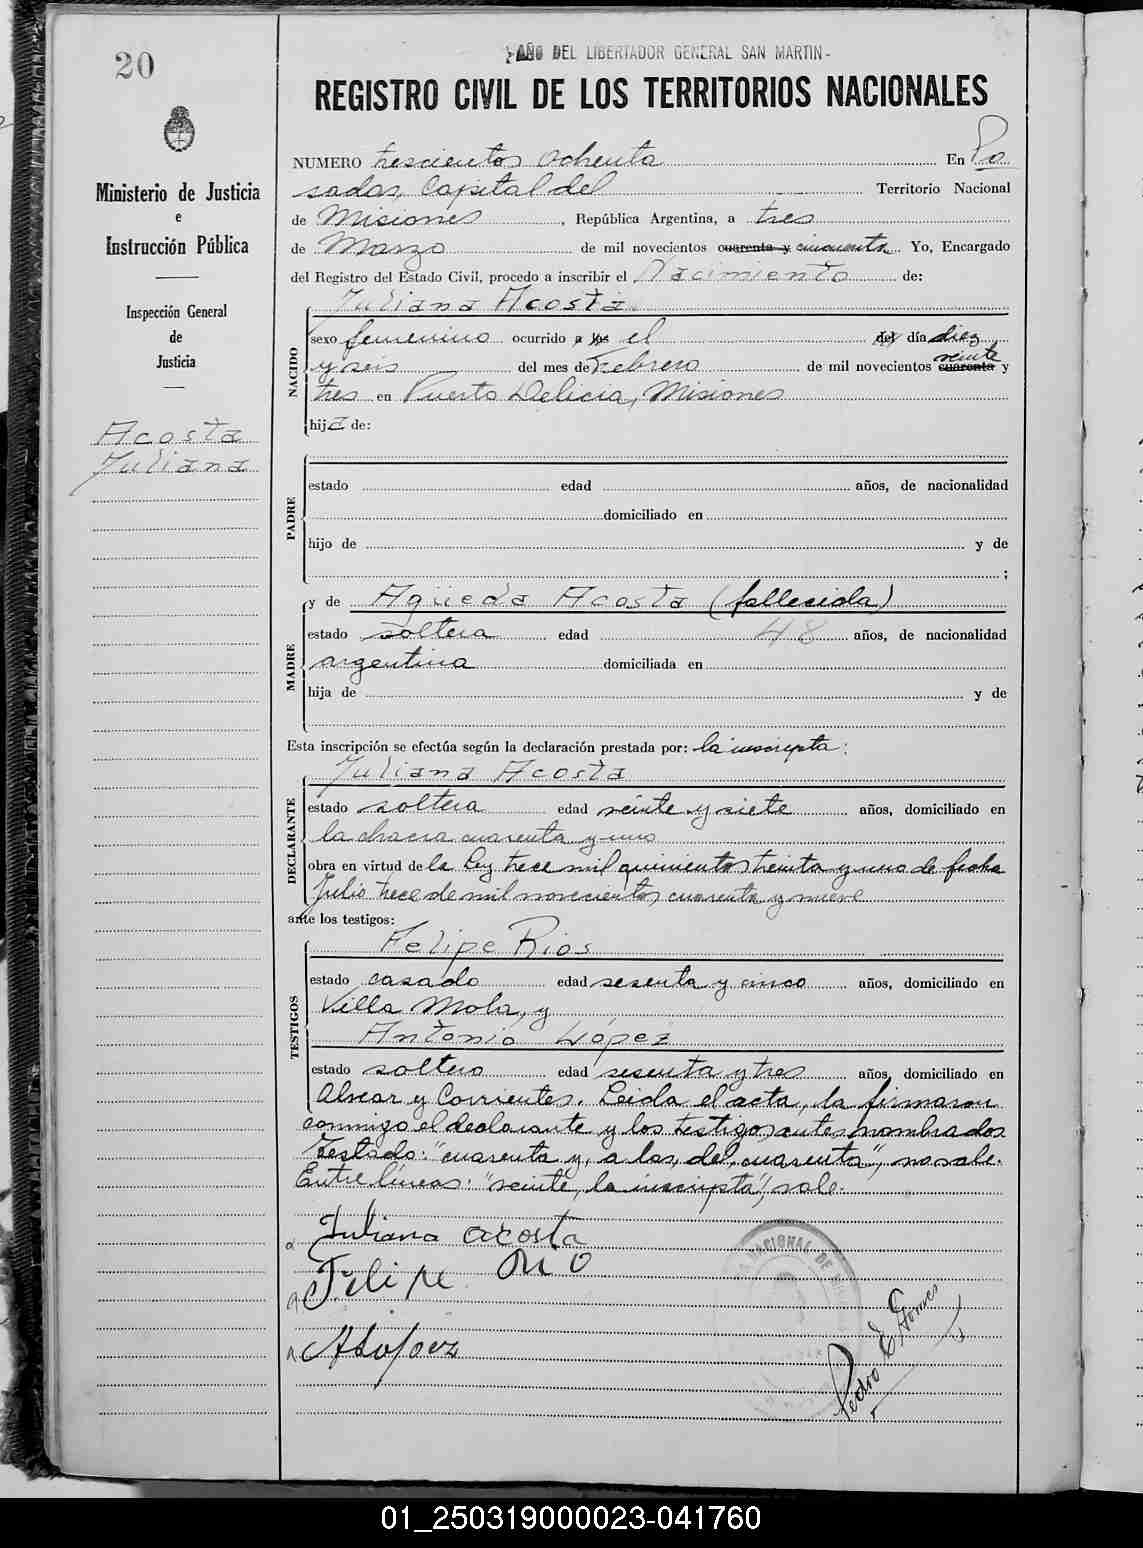 20
AÑO DEL LIBERTADOR GENERAL SAN MARTIN-
REGISTRO CIVIL DE LOS TERRITORIOS NACIONALES
Ministerio de Justicia
e
Instrucción Pública
Inspección General
de
Justicia
Acosta
Juliana
NUMERO trescientos ochenta En Po
sadas, Capital del Territorio Nacional
de Misiones, República Argentina, a tres
de Marzo de mil novecientos cuarenta y cincuenta. Yo, Encargado
del Registro del Estado Civil, procedo a inscribir el Nacimiento de:
NACIDO
Juliana Acosta
sexo femenino ocurrido a las el del día diez
y seis del mes de Febrero de mil novecientos veinte cuarenta y
tres en Puerto Delicia, Misiones
hija de:
PADRE
estado edad años, de nacionalidad
domiciliado en
hijo de y de
;
MADRE
y de Agüeda Acosta (fallecida)
estado soltera edad 48 años, de nacionalidad
argentina domiciliada en
hija de y de
Esta inscripción se efectúa según la declaración prestada por: la inscripta:
DECLARANTE
Juliana Acosta
estado soltera edad veinte y siete años, domiciliado en
la chacra cuarenta y uno
obra en virtud de la Ley trece mil quinientos treinta y uno de fecha
Julio trece de mil novecientos cuarenta y nueve
ante los testigos:
TESTIGOS
Felipe Rios
estado casado edad sesenta y cinco años, domiciliado en
Villa Mola, y
Antonio López
estado soltero edad sesenta y tres años, domiciliado en
Alvear y Corrientes. Leida el acta, la firmaron
conmigo el declarante y los testigos antes nombrados
Testado: "cuarenta y, a las, del, cuarenta", no vale.
Entre líneas: "veinte, la inscripta", vale.
Juliana acosta
Felipe Rio
A López
Pedro E Gomes
NACIONAL DE
01_250319000023-041760